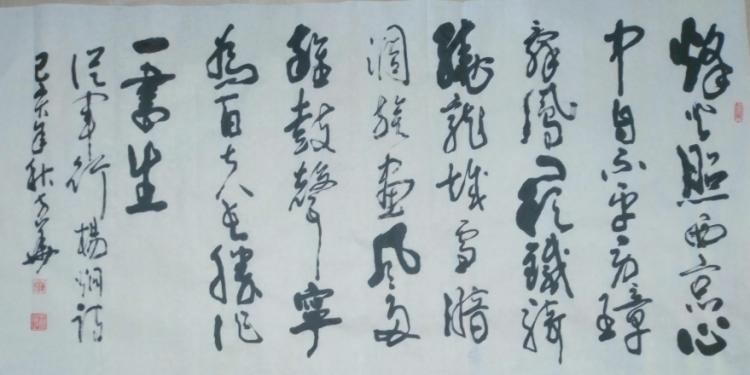 烽火照西京心
中自不平牙璋
辭鳳闕鐵騎
繞龍城雪暗
凋旗畫風多
雜鼓聲寧
為百夫長勝作
一書生
從軍行楊炯詩
己亥年秋